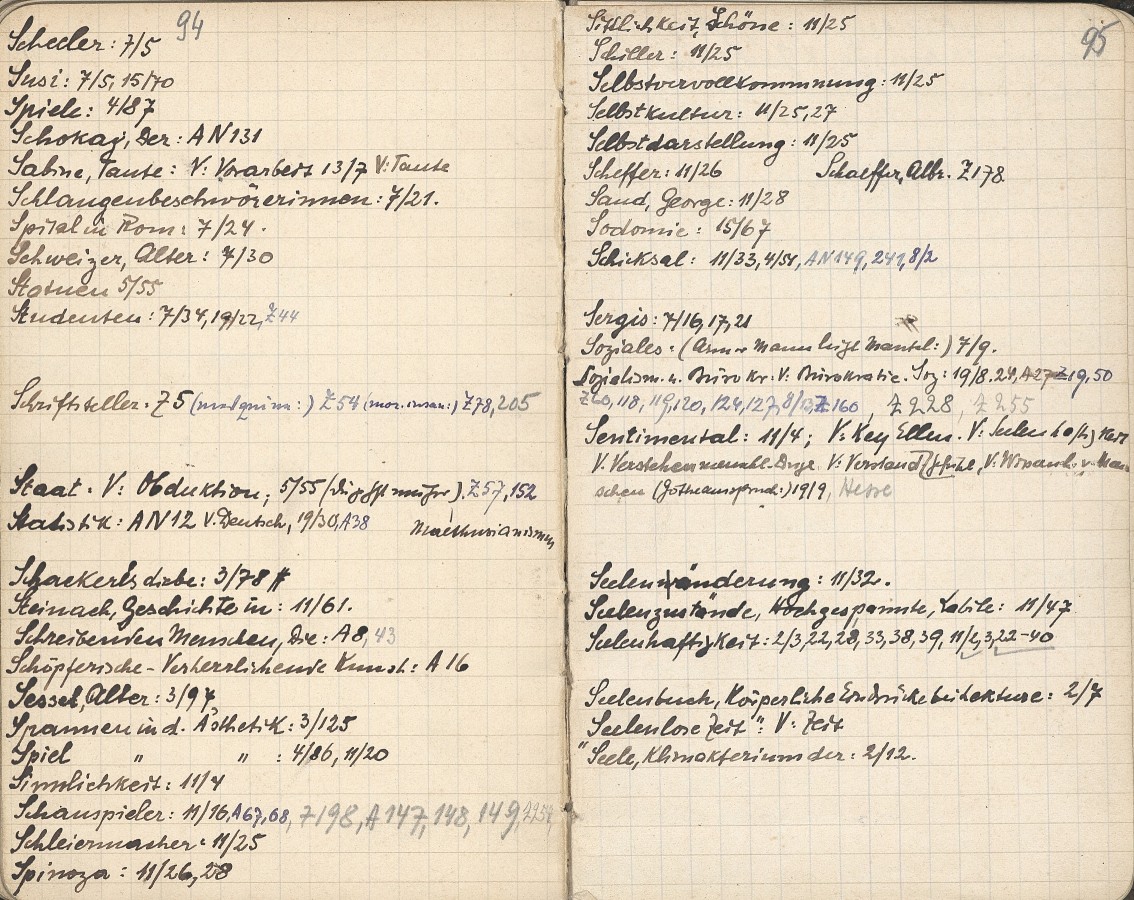 94
Scheeler: 7/5
Susi: 7/5, 15/70
Spiele: 4/87
Schokaj, Der: AN131
Sabine, Tante: V: Vorarbeit 13/7 V: Tante
Schlangenbeschwörerinnen: 7/21.
Spital in Rom: 7/24.
Schweizer, Alter: 7/30
Statuen 5/55
Studenten: 7/34, 19/22, Z44
Schriftsteller. Z5 ( ) Z54 (mor. insan:) Z78, 205
Staat. V: Obduktion, 5/55 ( ). Z57, 152
Statistik: AN12 V. Deutsch, 19/30, A38
Malthusianismus
Schackerls diebe: 3/78
Steinach, Geschichte in: 11/61.
Schreibenden Menschen, Die: A8, 43
Schöpferische-Verherrlichende Kunst: A16
Sessel, Alter: 3/97
Spannen in d. Ästhetik: 3/125
Spiel " " : 4/86, 11/20
Sinnlichkeit: 11/4
Schauspieler: 11/16, A67, 68, Z198, A147, 148, 149,
Schleiermacher: 11/25
Spinoza: 11/26, 28
95
Sittlichkeit, Schöne: 11/25
Schiller: 11/25
Selbstvervollkommnung: 11/25
Selbstkultur: 11/25, 27
Selbstdarstellung: 11/25
Scheffer: 11/26 Schaeffer, Albr. Z178
Sand, George: 11/28
Sodomie: 15/67
Schicksal: 11/33, 4/54, AN149, 241, 8/2
Sergis: 7/16, 17, 21
Soziales: (Armer Mann Mantel:) 7/9.
Sozialism. u. Bürokr. V: Bürokratie. Soz: 19/8. 24, A27 Z19, 50
Z60, 118, 119, 120, 124, 127, Z160, Z228, Z255
Sentimental: 11/4; V: Key Ellen. V: Seelenhaftigkeit
V. Verstehen V: Verstand/Gefühl, V:
schen (Goetheausspruch:) 19/9, Hesse
Seelenänderung: 11/32.
Seelenzustände, Hochgespannte, Labile: 11/47
Seelenhaftigkeit: 2/3, 22, 28, 33, 38, 39, 11/2, 3, 22-40
Seelenbuch, Körperliche Eindrücke bei Lektüre: 2/7
Seelenlose Zeit": V: Zeit
"Seele, Klimakterium der: 2/12.